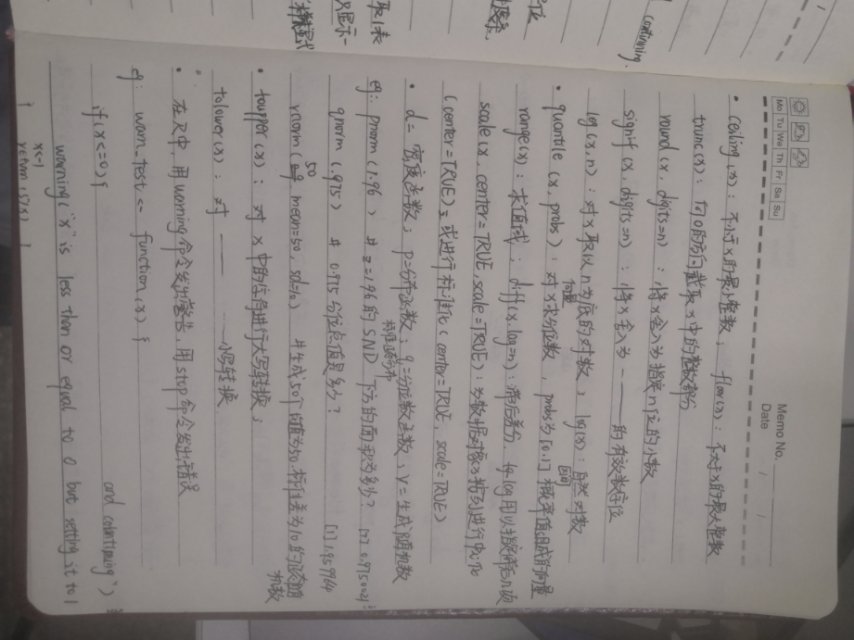 Memo No.
Mo Tu We Th Fr Sa Su
Date / /
• ceiling(x): 不小于x的最小整数; floor(x): 不大于x的最大整数
trunc(x): 向0的方向截取x中的整数部分
round(x, digits=n): 将x舍入为指定n位的小数
signif(x, digits=n): 将x舍入为——的有效数字位
log(x,n): 对x取以n为底的对数; log(x): 自然对数
• quantile(x, probs): 对x求分位数, probs为[0,1]概率值组成的向量
向量
range(x): 求值域; diff(x, lag=n): 滞后差分, lag用以指定滞后几项
scale(x, center=TRUE, scale=TRUE): 为数据对象x按列进行中心化
(center=TRUE) 或进行标准化(center=TRUE, scale=TRUE)
• d=密度函数; p=分布函数; q=分位数函数; r=生成随机数
标准正态分布
eg: pnorm(1.96) # z=1.96的SND下方的面积为多少? [1] 0.9750021
qnorm(.975) # 0.975分位点值是多少? [1] 1.959964
rnorm(50, mean=50, sd=10) #生成50个均值为50,标准差为10的正态随
机数
• toupper(x): 对x中的字母进行大写转换;
tolower(x): 对——小写转换
• 在R中, 用warning命令发出警告, 用stop命令发出错误
eg: warn_test <- function(x) {
if(x<=0) {
warning("'x' is less than or equal to 0 but setting it to 1
and continuing")
x<-1
}
return(5/x)
}
continuing.